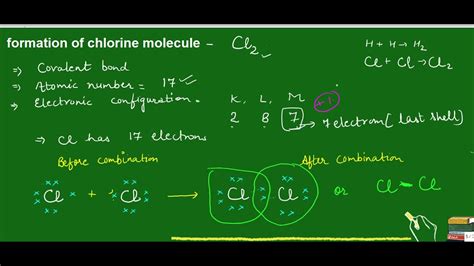 formation of chlorine molecule – Cl₂
H + H → H₂
Cl + Cl → Cl₂
⇒ Covalent bond
⇒ Atomic number = 17
⇒ Electronic configuration =
K, L, M +1
2 8 7 → 7 electron (last shell)
⇒ Cl has 17 electrons
Before combination
After combination
Cl + Cl → Cl Cl or Cl – Cl